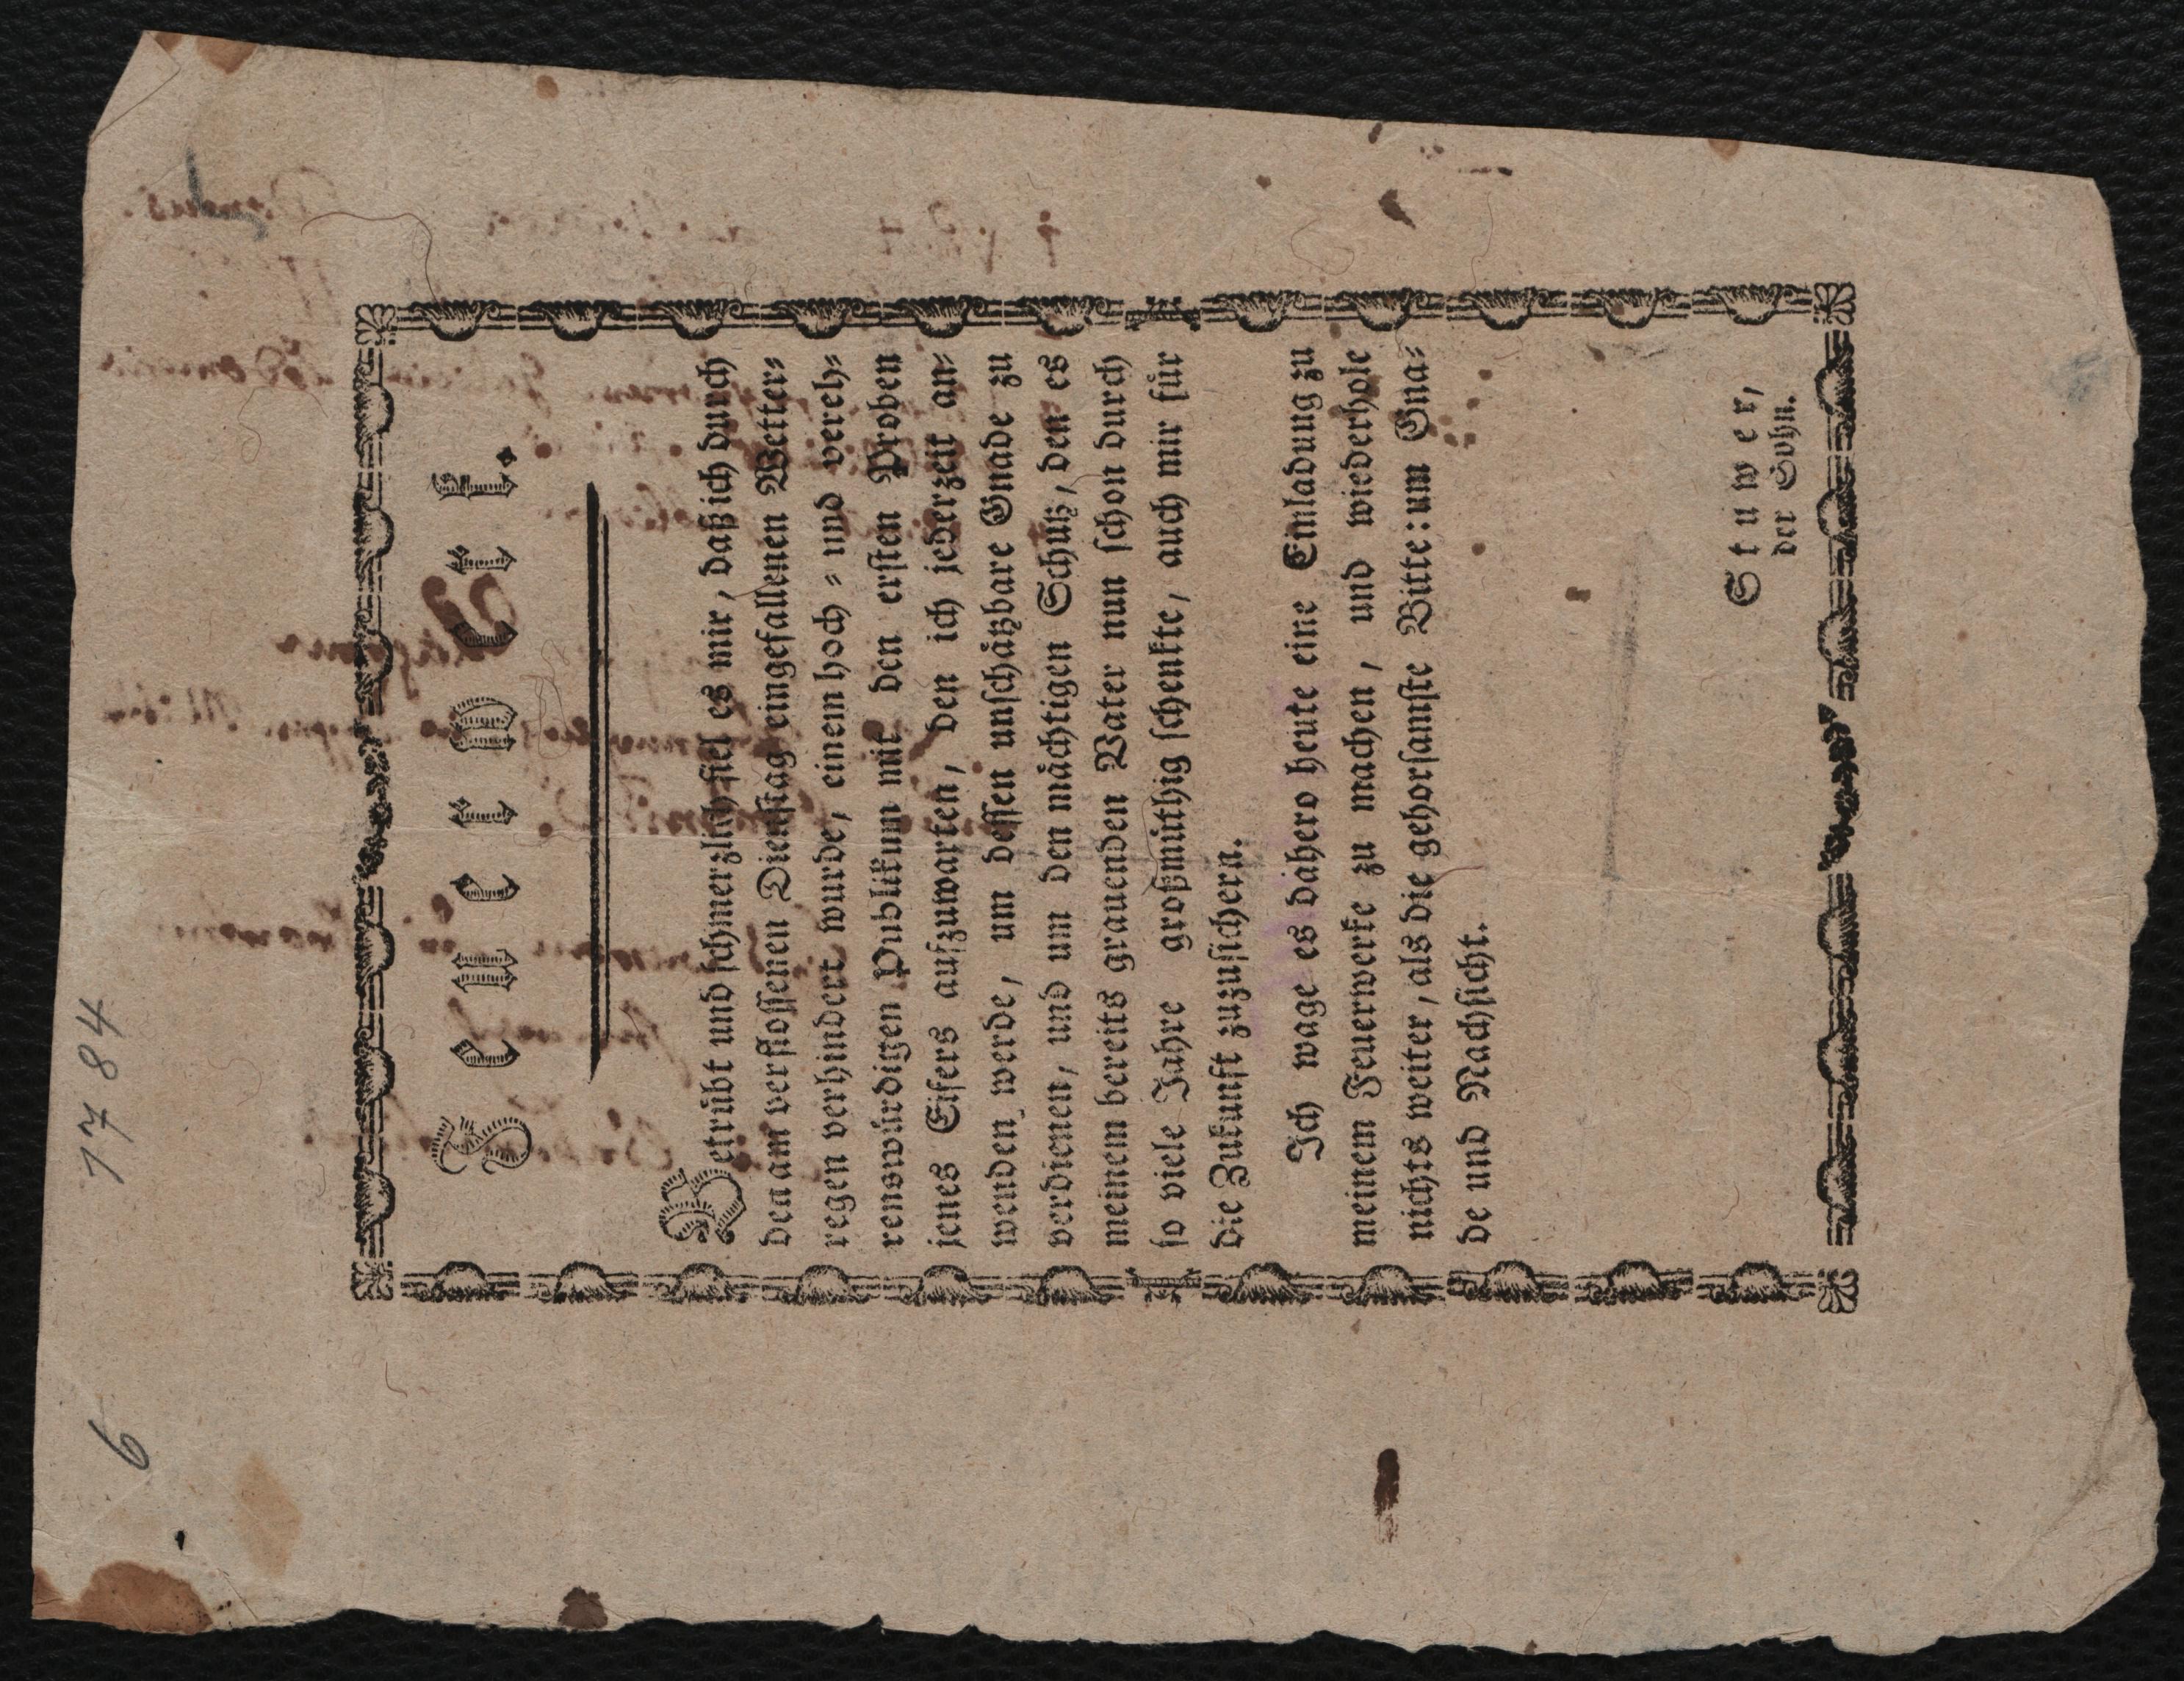 1784
6
Feuerwerk.
Betrübt und schmerzlich fiel es mir, daß ich durch
den am verflossenen Dienstag eingefallenen Wetter=
regen verhindert wurde, einem hoch = und vereh=
renswürdigen Publikum mit den ersten Proben
jenes Eifers aufzuwarten, den ich jederzeit an=
wenden werde, um dessen unschätzbare Gnade zu
verdienen, und um den mächtigen Schutz, den es
meinem bereits grauenden Vater nun schon durch
so viele Jahre großmüthig schenkte, auch mir für
die Zukunft zuzusichern.
Ich wage es dahero heute eine Einladung zu
meinem Feuerwerke zu machen, und wiederhole
nichts weiter, als die gehorsamste Bitte: um Gna=
de und Nachsicht.
Stuwer,
der Sohn.